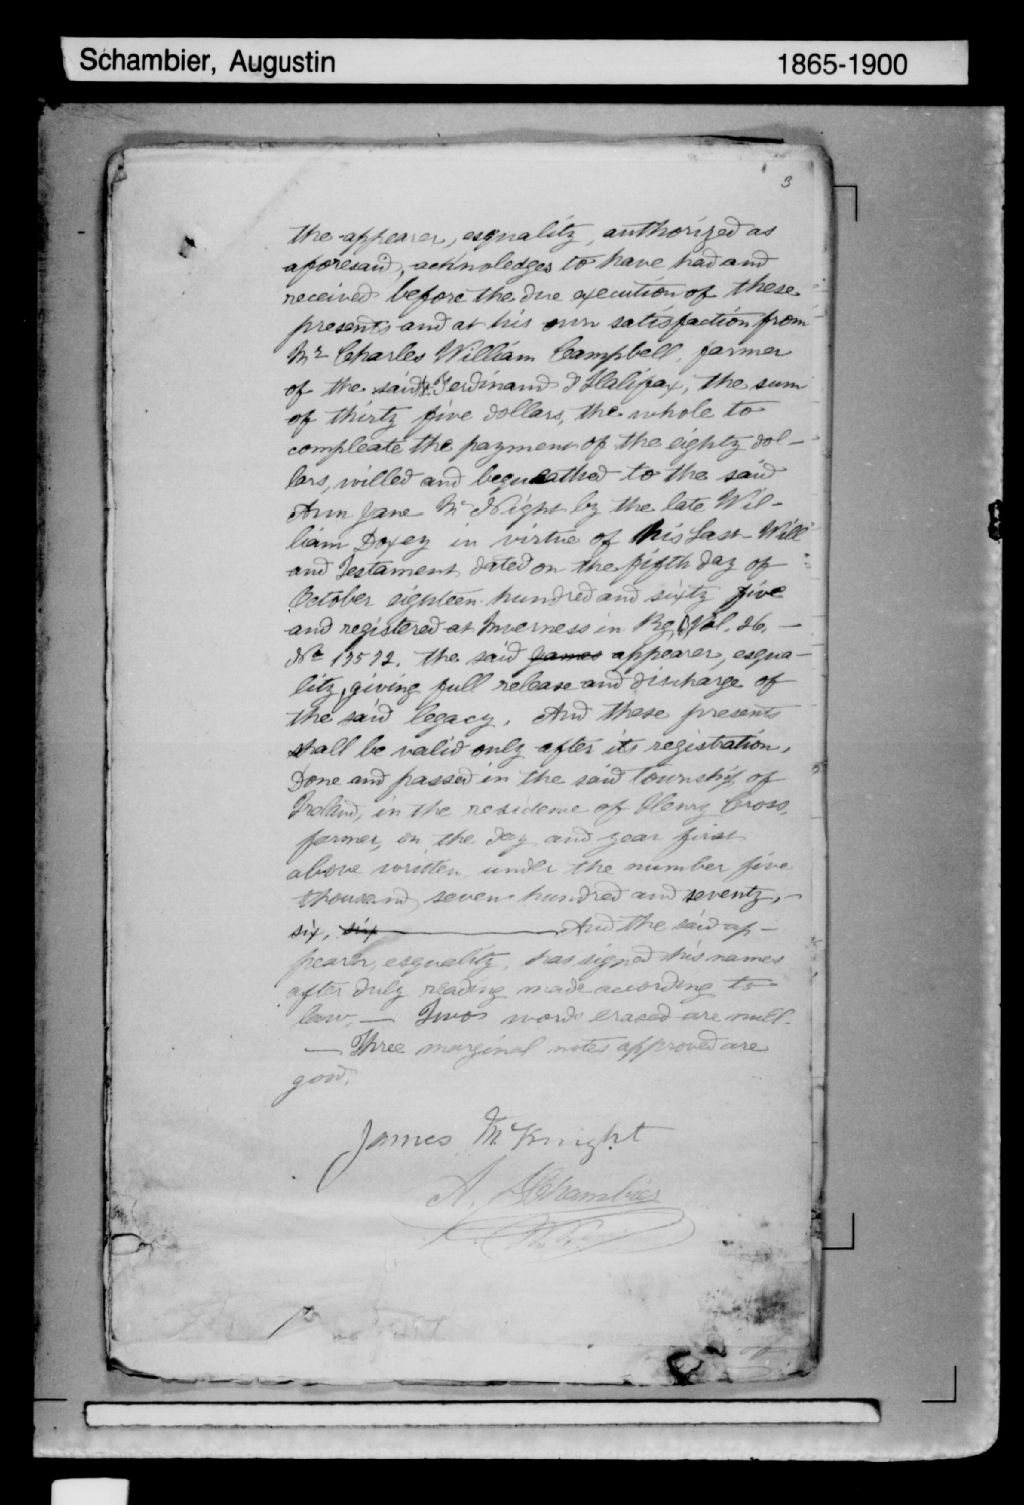 Schambier, Augustin
1865-1900
3
the appearer, esqualitz, authorized as
aforesaid, acknoledges to have had and
received before the due execution of these
presents and at his own satisfaction from
Mr Charles William Campbell, farmer
of the said Ferdinand d'Halifax, the sum
of thirty five dollars, the whole to
compleate the payment of the eighty dol-
lars, willed and bequeathed to the said
Ann Jane Mc Night by the late Wil-
liam Doxey in virtue of his Last Will
and Testament dated on the fifth day of
October eighteen hundred and sixty five
and registered at Inverness in Reg. Vol. 26.
No 13572. the said James appearer, esqua-
litz, giving full release and discharge of
the said legacy. And these presents
shall be valid only after its registration.
Done and passed in the said township of
Ireland, in the residence of Henry Cross,
farmer, on the day and year first
above written, under the number five
thousand seven hundred and seventy,-
six, six — And the said ap-
pearer, esqualitz, has signed his names
after duly reading made according to
law. — Two words erased are null.
— Three marginal notes approved are
good.
James McKnight
A. Schambier
N.P.